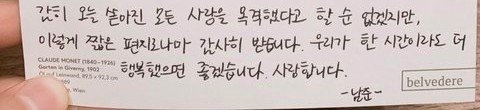 감히 오늘 쏟아진 모든 사랑을 목격했다고 할 순 없겠지만,
이렇게 짧은 편지로나마 감사히 받습니다. 우리가 한 시간이라도 더
행복했으면 좋겠습니다. 사랑합니다.
-남준-
CLAUDE MONET (1840–1926)
Garten in Giverny, 1902
Öl auf Leinwand, 89,5 x 92,3 cm
Wien
belvedere